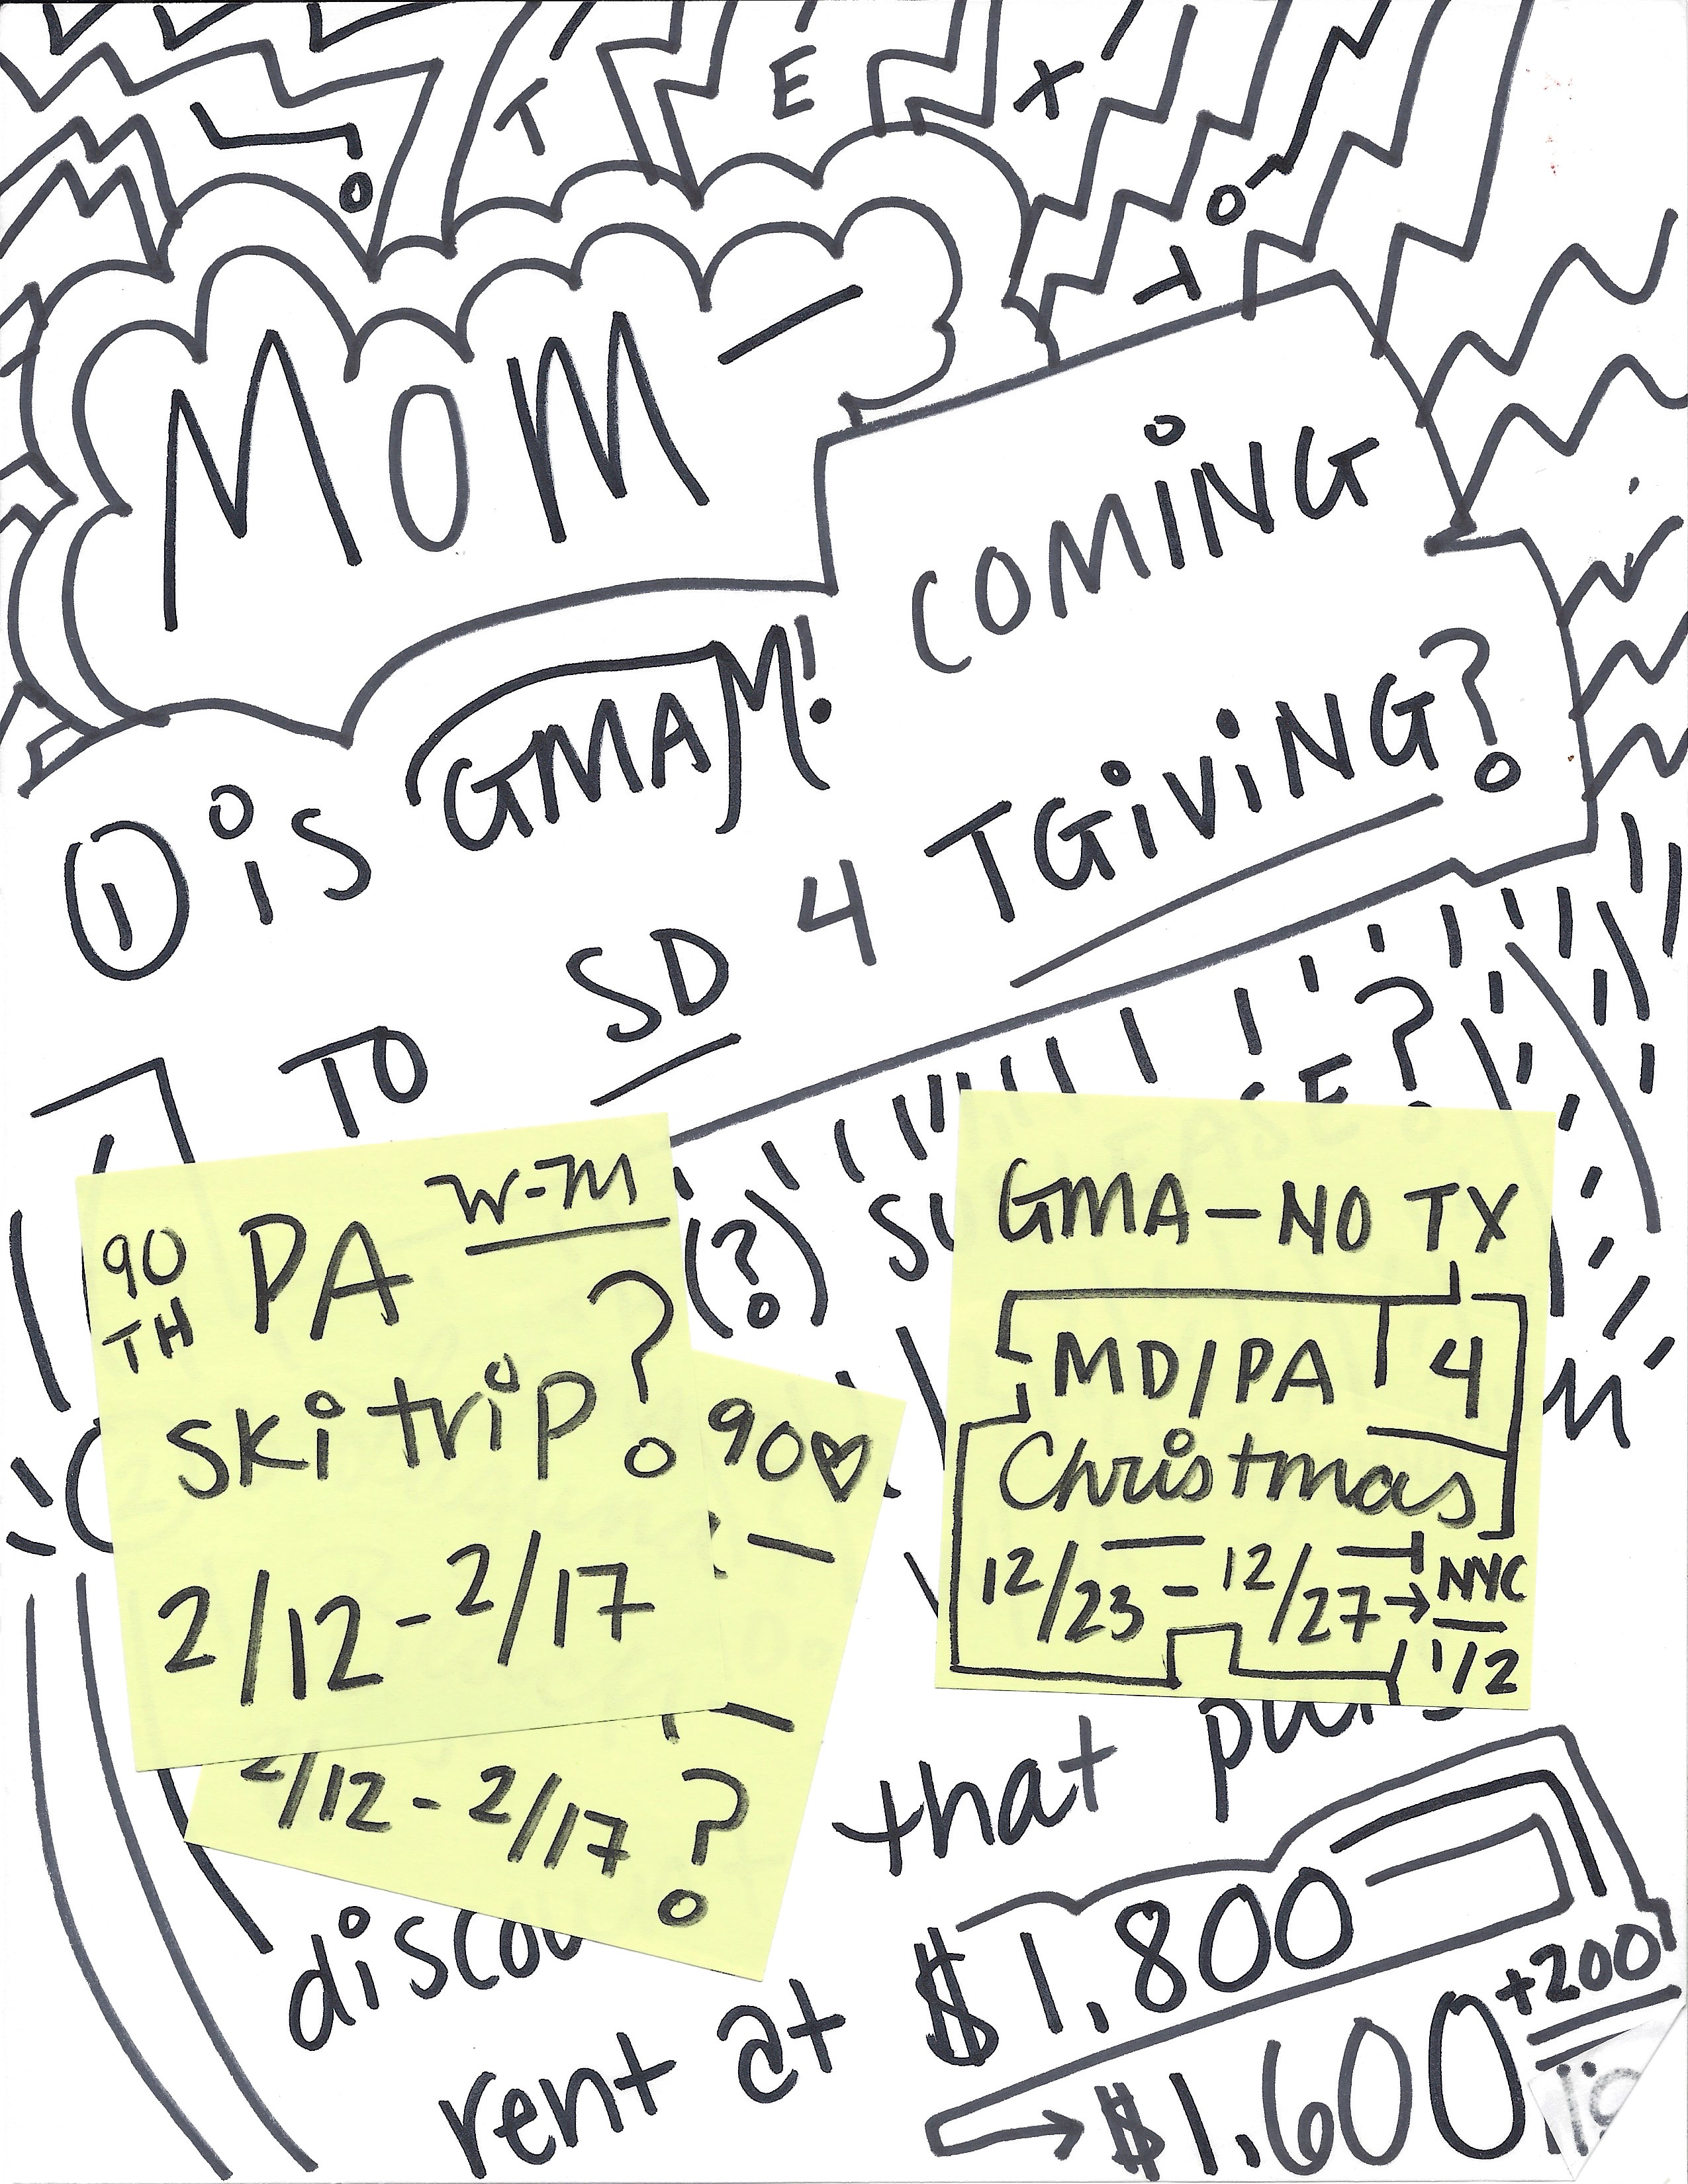 TEXT
MOM —
① is GMAM! COMING
TO SD 4 TGiViNG?
(?)
90TH PA W-M
ski trip?
2/12 - 2/17
90♡
2/12 - 2/17?
GMA — NO TX
MD/PA 4
Christmas
12/23 - 12/27 → NYC
1/2
that
rent at $1,800
+200
→ $1,600